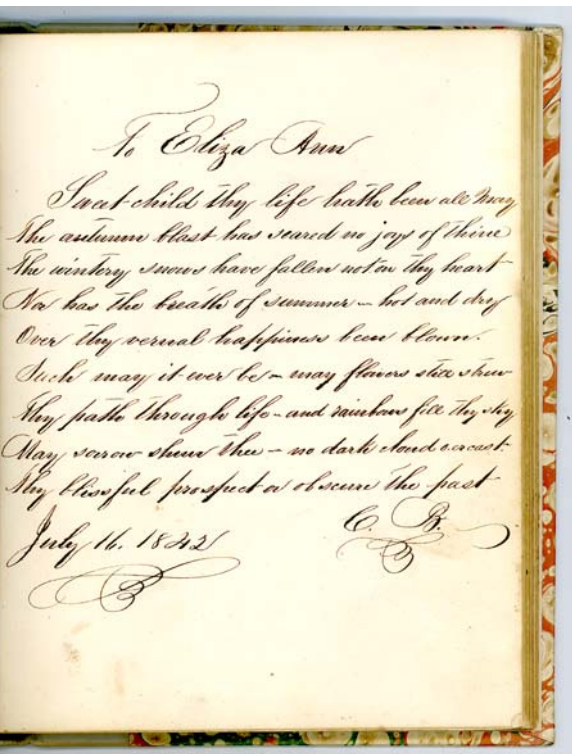 To Eliza Ann
Sweet child thy life hath been all May
The autumn blast has seared no joys of thine
The wintery snows have fallen not on thy heart
Nor has the breath of summer - hot and dry
Over thy vernal happiness been blown.
Such may it ever be - may flowers still strew
Thy path through life - and rainbows fill thy sky
May sorrow shun thee - no dark cloud o'ercast
Thy blissful prospect or obscure the past
C. B.
July 16. 1842